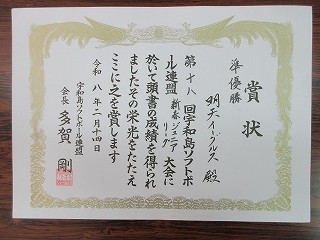 賞状
準優勝
明天イーグルス 殿
第十八回宇和島ソフトボ
ール連盟 新春ジュニアリーグ 大会に
於いて頭書の成績を得られ
ましたその栄光をたたえ
ここに之を賞します
令和八年二月十四日
宇和島ソフトボール連盟
会長 多賀 剛